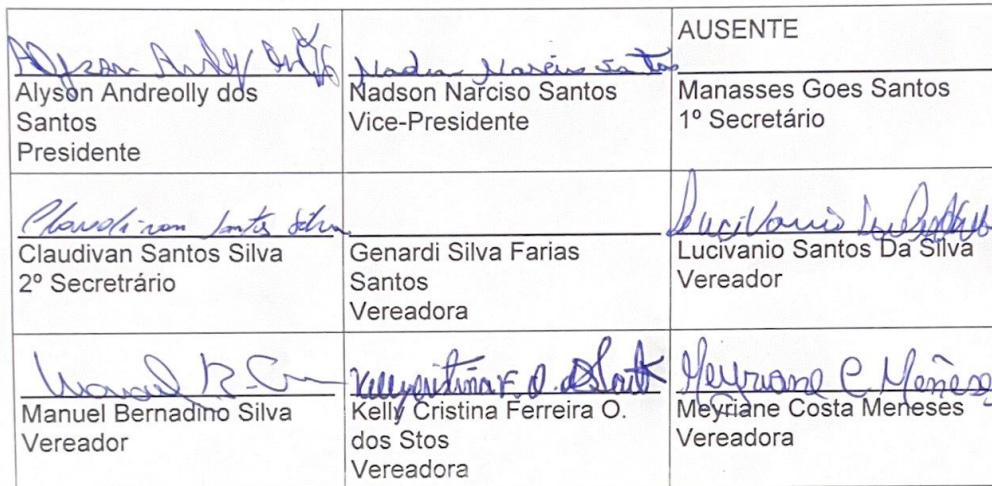 AUSENTE
Alyson Andreolly dos
Santos
Presidente
Nadson Narciso Santos
Nadson Narciso Santos
Vice-Presidente
Manasses Goes Santos
1º Secretário
Claudivan Santos Silva
Claudivan Santos Silva
2º Secretrário
Genardi Silva Farias
Santos
Vereadora
Lucivanio Santos Da Silva
Vereador
Manuel Bernadino Silva
Vereador
Kelly Cristina Ferreira O.
dos Stos
Vereadora
Meyriane C. Meneses
Meyriane Costa Meneses
Vereadora